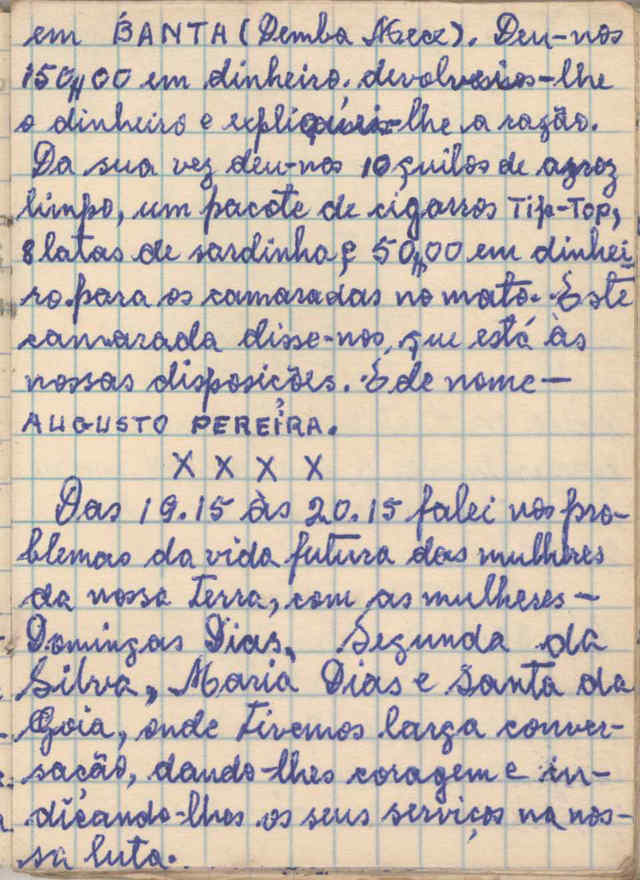 em BANTA (Demba Mece). Deu-nos
150,,00 em dinheiro. devolvemos-lhe
o dinheiro e expliquei-lhe a razão.
Da sua vez deu-nos 10 quilos de arroz
limpo, um pacote de cigarros Tip-Top,
8 latas de sardinha, e 50,,00 em dinhei
ro para os camaradas no mato. Este
camarada disse-nos, que está às
nossas disposicões. É de nome—
AUGUSTO PEREÍRA.
X X X X
Das 19.15 às 20.15 falei nos pro-
blemas da vida futura das mulheres
da nossa terra, com as mulheres—
Domingas Dias, Segunda da
Silva, Maria Dias e Santa da
Goia, onde tivemos larga conver-
sacão, dando-lhes coragem e in-
dicando-lhes os seus serviços na nos-
sa luta.